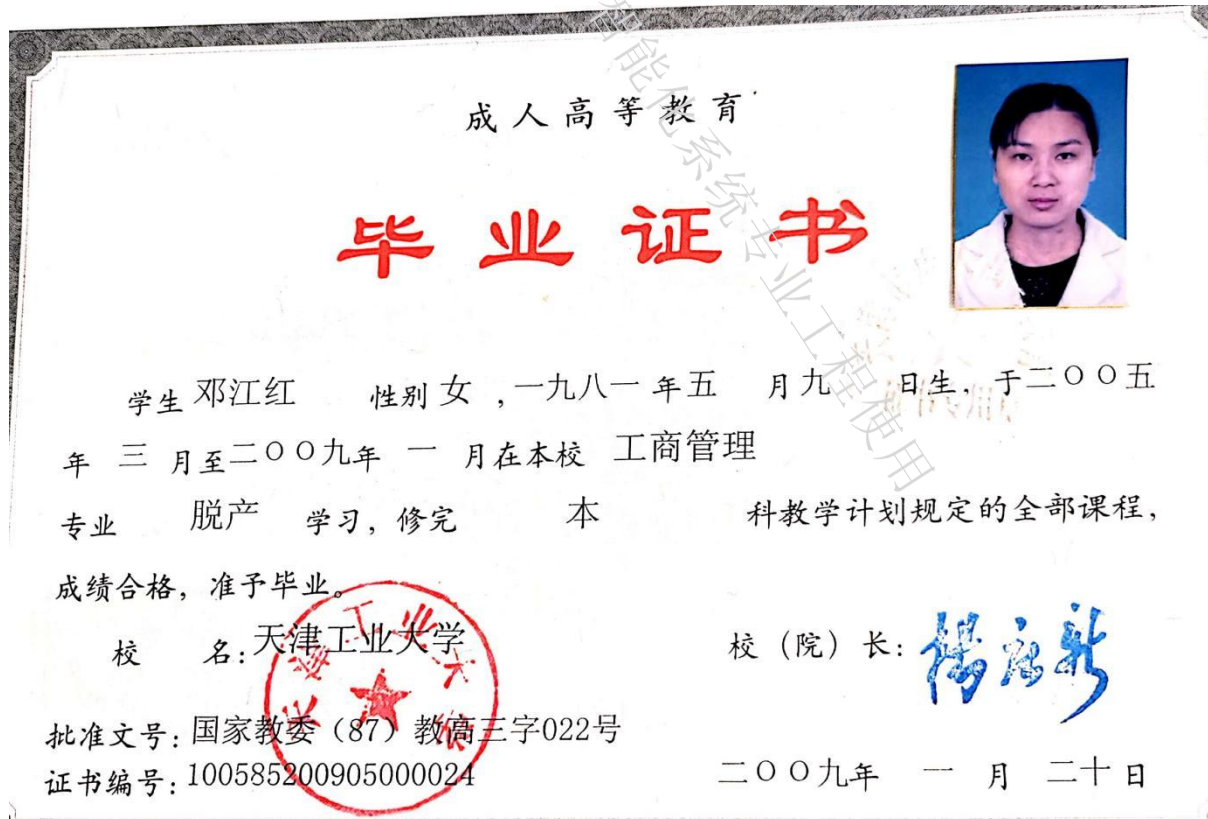 成人高等教育
毕业证书
学生 邓江红 性别 女 ，一九八一 年 五 月 九 日生，于二〇〇五
年 三 月至二〇〇九年 一 月在本校 工商管理
专业 脱产 学习，修完 本 科教学计划规定的全部课程，
成绩合格，准予毕业。
校 名：天津工业大学
校（院）长：
批准文号：国家教委（87）教高三字022号
证书编号：100585200905000024
二〇〇九年 一 月 二十 日
智能化系统专业工程使用
天津工业大学